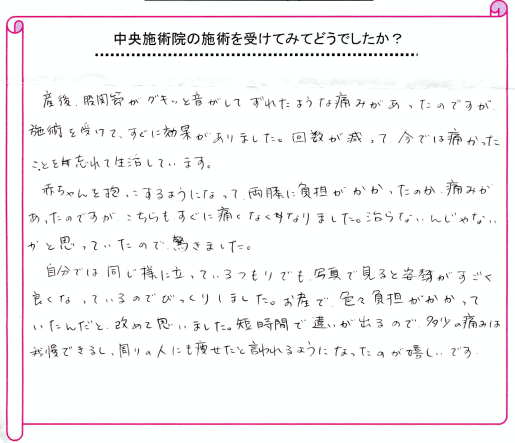 中央施術院の施術を受けてみてどうでしたか？
産後、股関節がグキッと音がしてずれたような痛みがあったのですが、
施術を受けて、すぐに効果がありました。回数が減って今では痛かった
ことを忘れて生活しています。
赤ちゃんを抱っこするようになって、両膝に負担がかかったのか、痛みが
あったのですが、こちらもすぐに痛くなくなりました。治らないんじゃない
かと思っていたので、驚きました。
自分では同じ様に立っているつもりでも、写真で見ると姿勢がすごく
良くなっているのでびっくりしました。お産で、色々負担がかかって
いたんだと、改めて思いました。短時間で違いが出るので、多少の痛みは
我慢できるし、周りの人にも痩せたと言われるようになったのが嬉しいです。